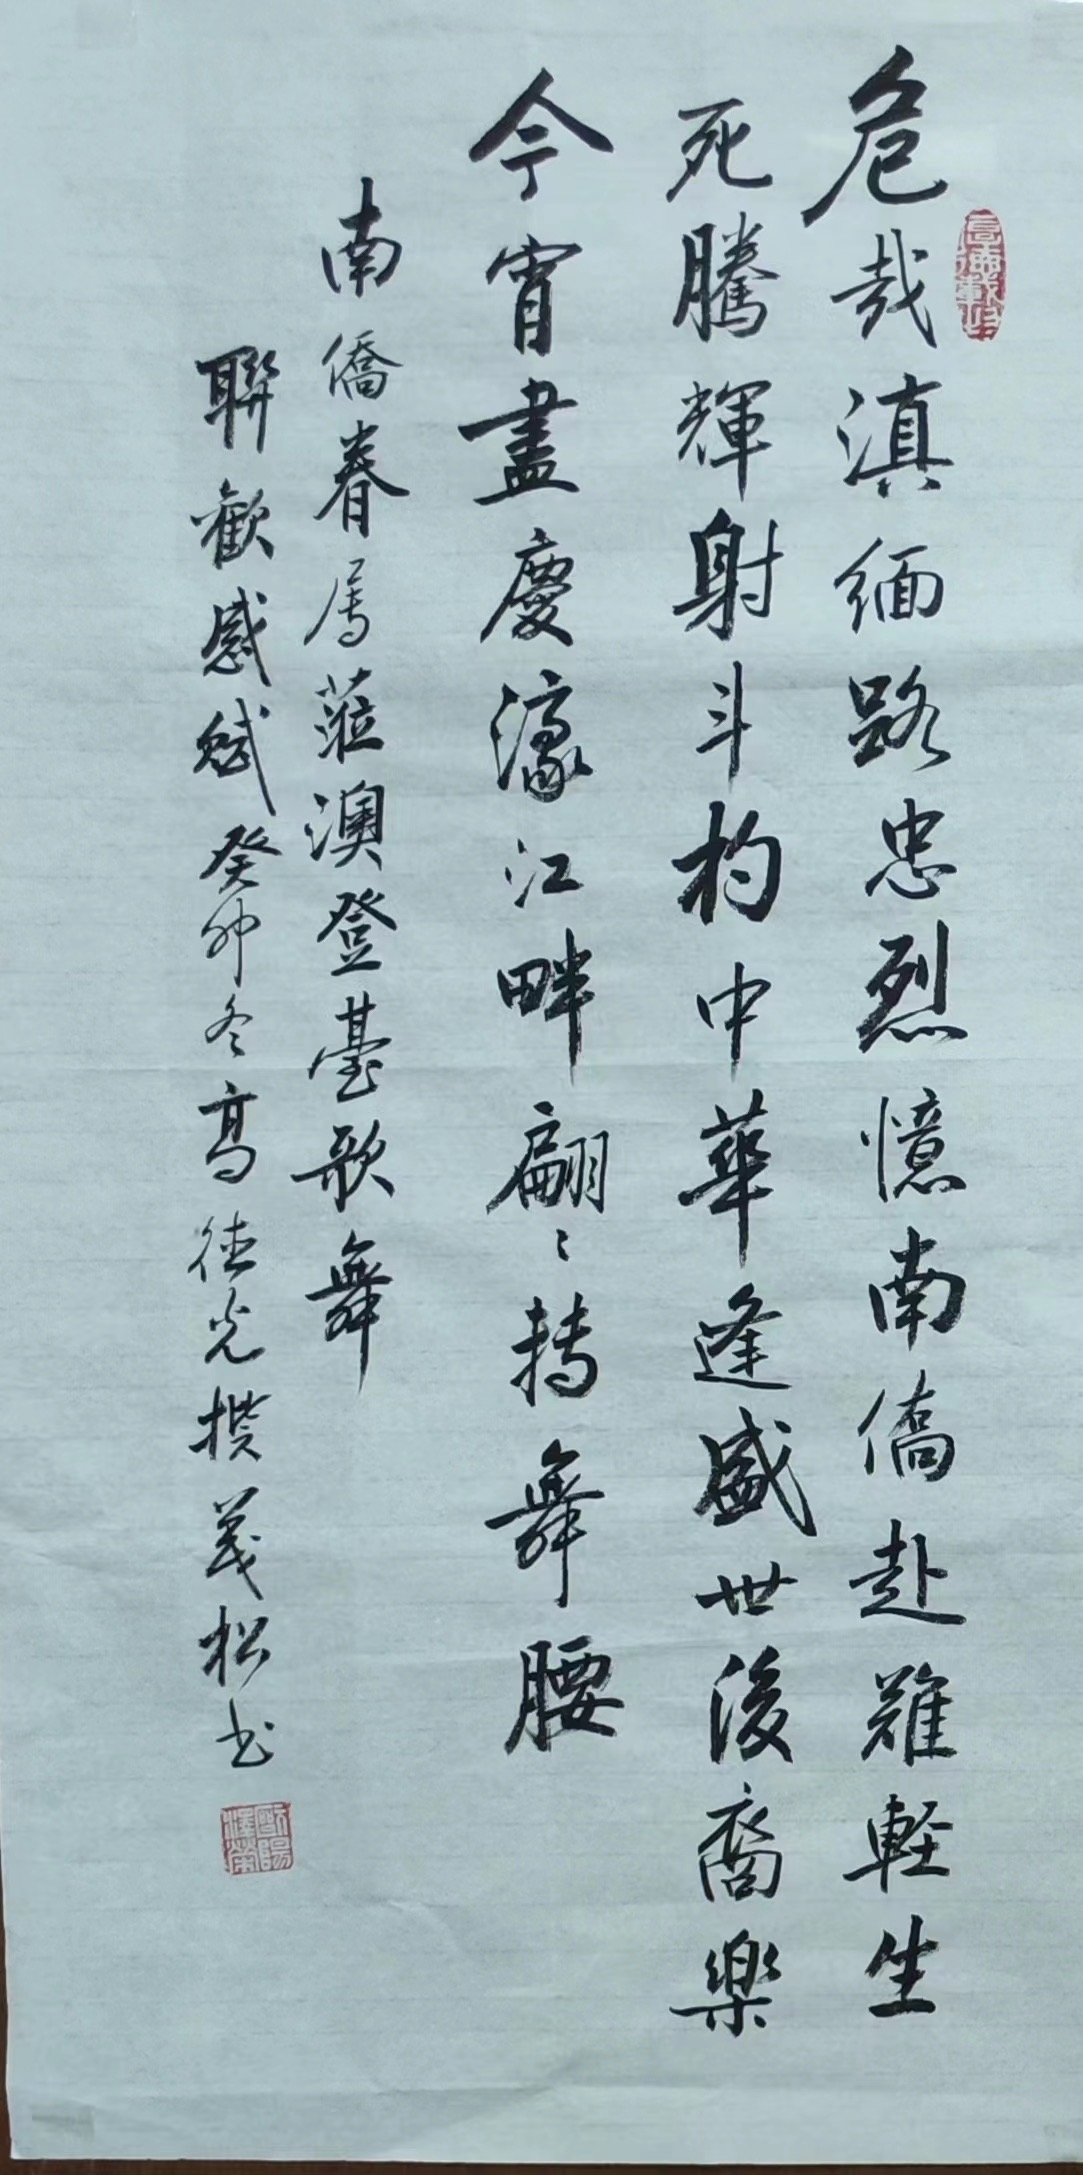 危哉滇缅路忠烈憶南僑赴難軽生
死騰輝射斗杓中華逢盛世後裔樂
今宵盡慶濠江畔翩〻转舞腰
南僑眷属蒞澳登臺歌舞
聯歡感赋癸卯冬高德光撰義松书